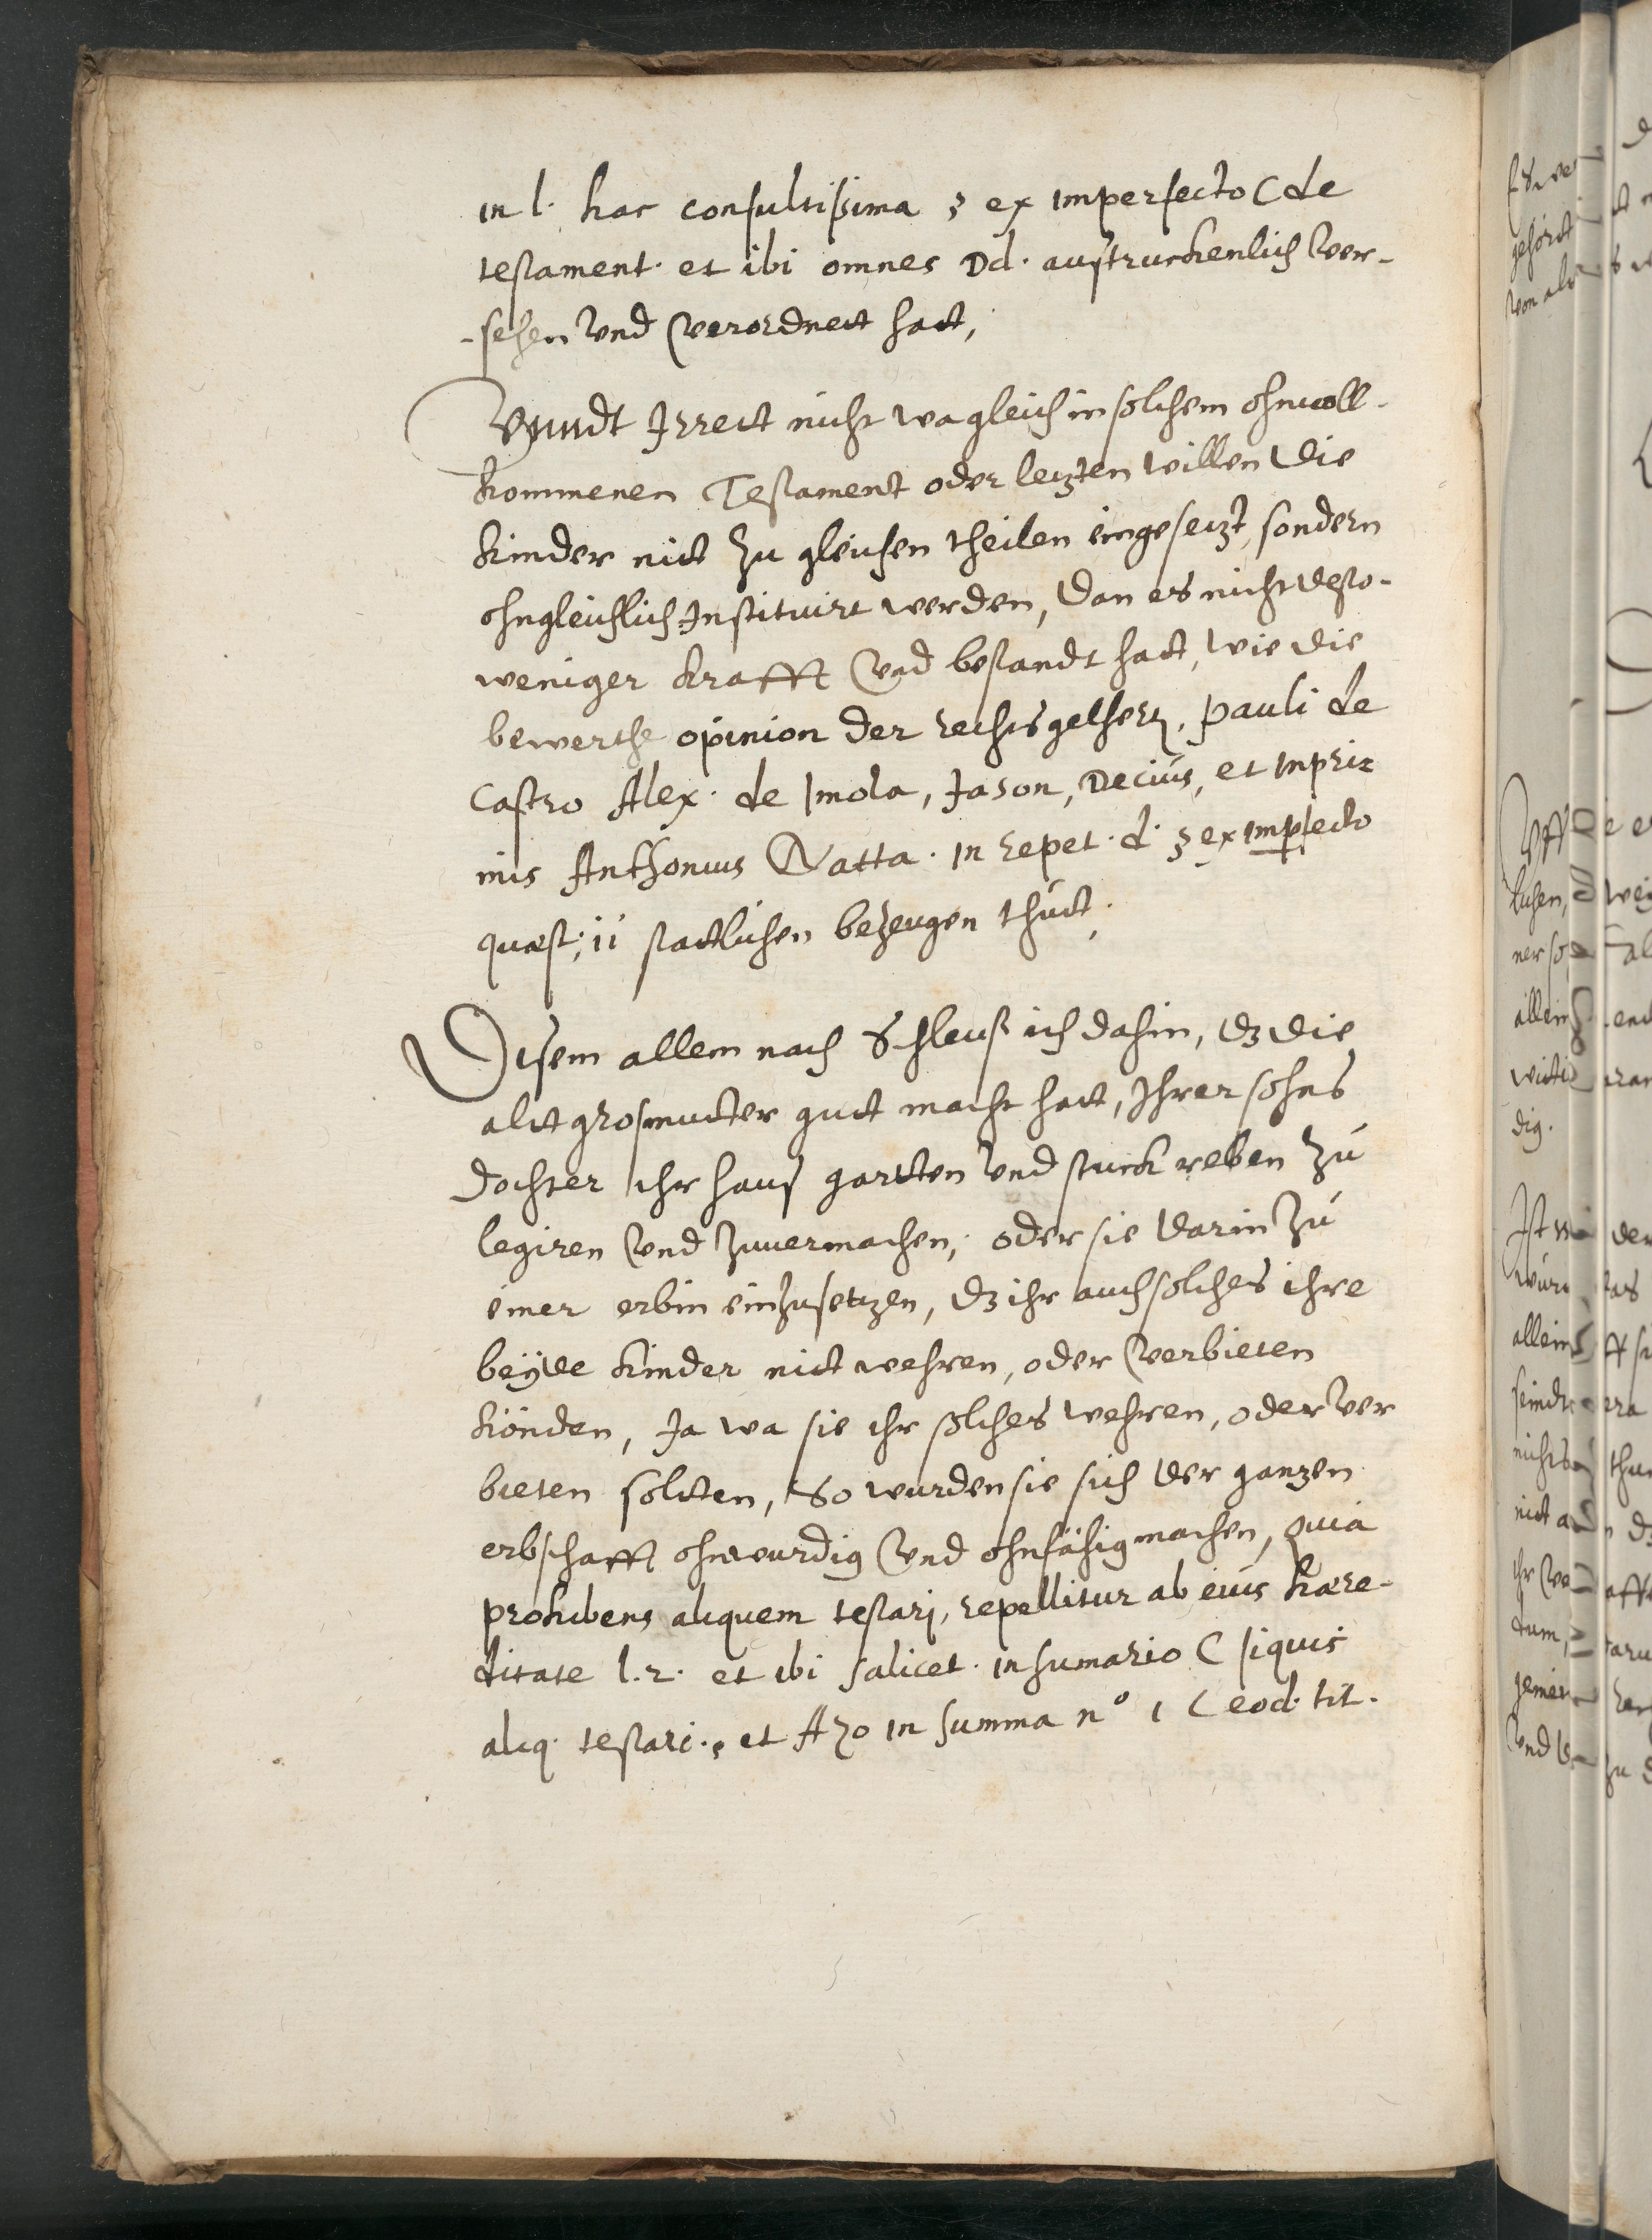 in l. hac consultissima § ex imperfecto C de
testament. et ibi omnes Dd. austruckenlich ver-
-sehen vnd verordnett hatt,
Vnndt Irrett nicht wa gleich in solchem ohnvoll-
kommenen Testament oder letzten willen die
kinder nitt zu gleichen theilen eingesetzt, sondern
ohngleichlich Instituirt werden, dan es nicht desto-
weniger krafft vnd bestandt hatt, wie die
bewerthe opinion der rechts gelherten, Pauli de
Castro Alex. de Imola, Jason, Decius, et inpri-
mis Anthonius Natta. in repet. d. § ex impfecto
quæst. ii stattlichen bezeugen thutt.
Disem allem nach Schleuß ich dahin, dz die
altt grosmutter gutt macht hatt, Ihrer sohns
dochter ihr haus gartten vnd stuck reben zu
legiren vnd zuuermachen, oder sie darin zu
einer erbin einzusetzen, dz ihr auch solches ihre
beyde kinder nitt wehren, oder verbieten
könden, Ja wa sie ihr solches wehren, oder ver
bieten soltten, So wurden sie sich der ganzen
erbschafft ohnwurdig vnd ohnfähig machen, quia
prohibens aliquem testarj, repellitur ab eius hære-
ditate l. 2. et ibi salicet. in sumario C siquis
aliq. testari. et Azo in summa n° 1 C eod. tit.